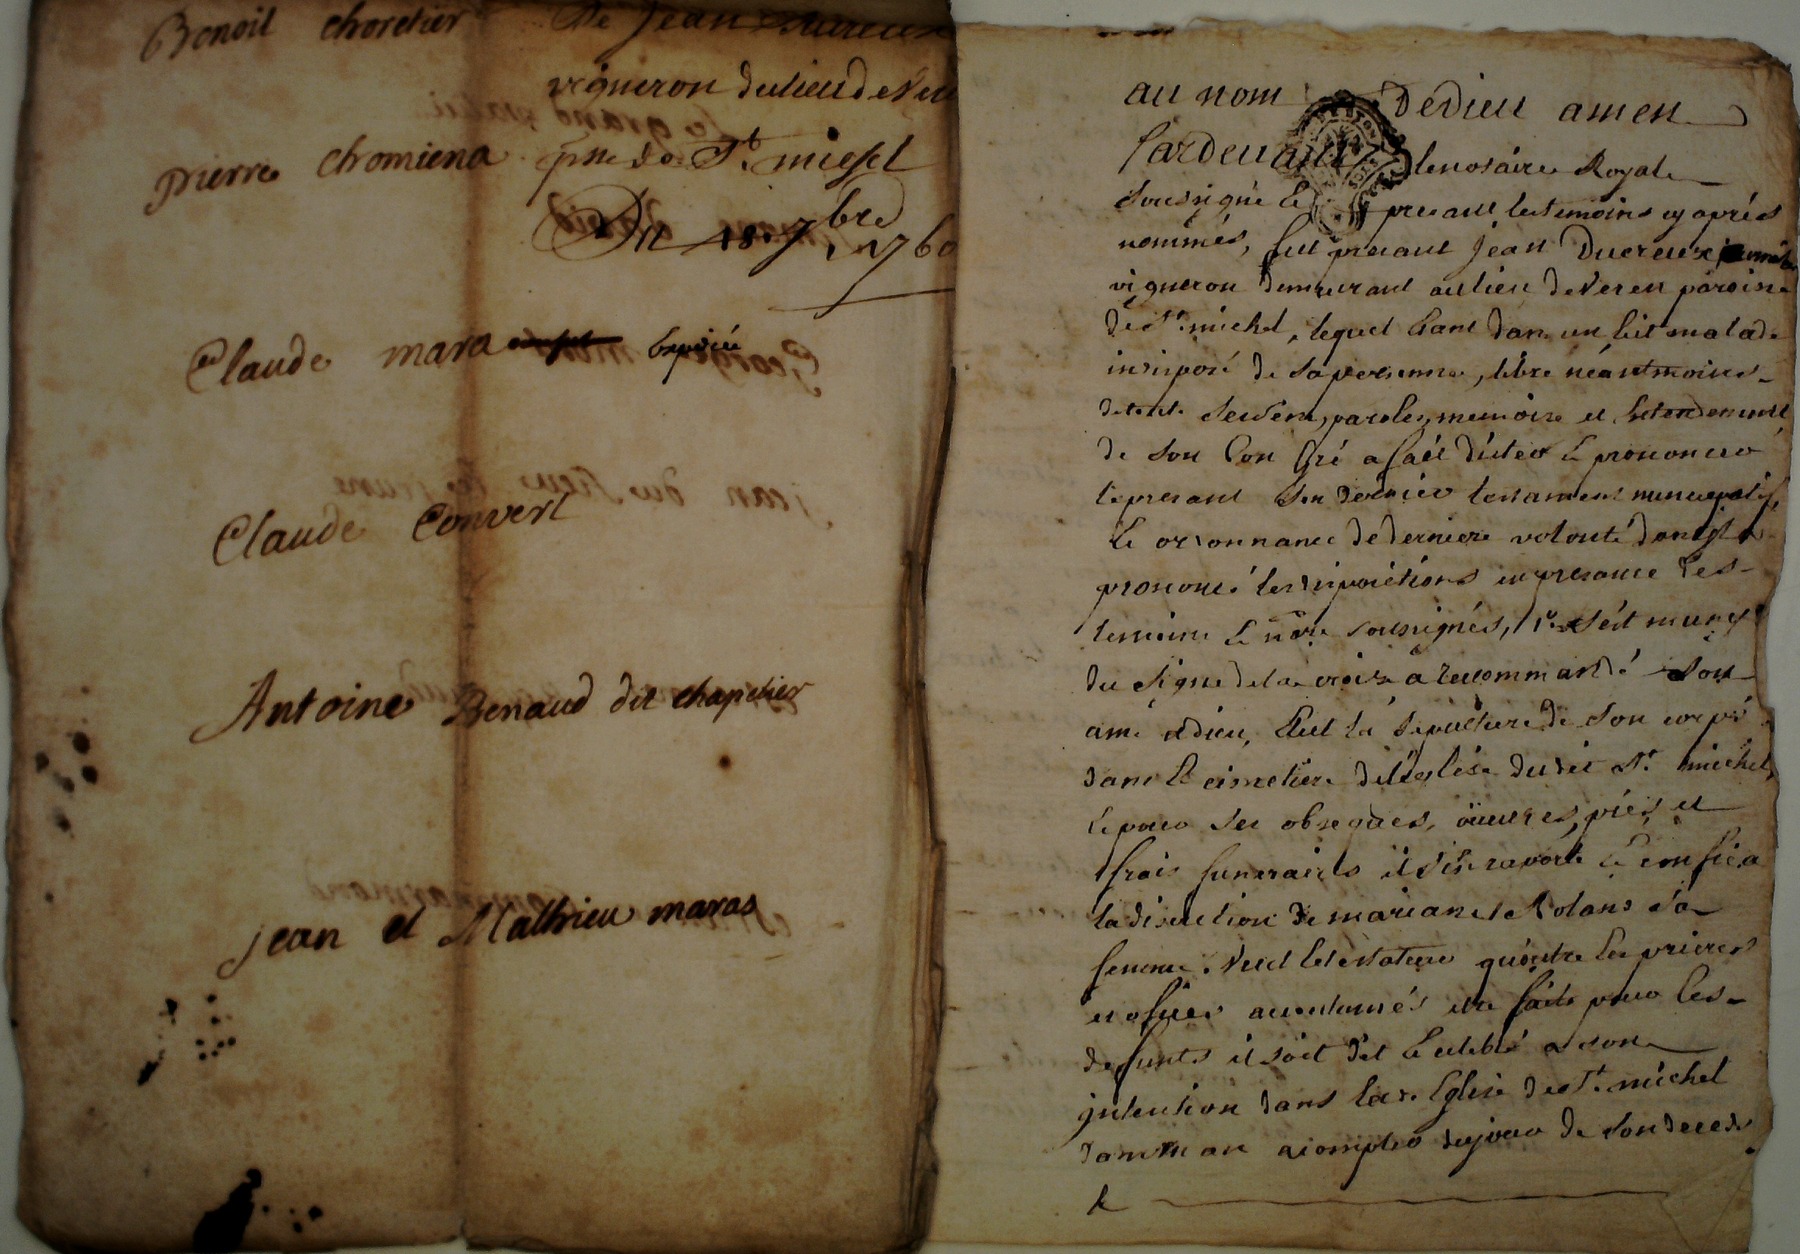 Benoit choretier
pierre chomiena
Claude mara expediée
Claude Convert
Antoine Benaud dit chapelier
jean et Mathieu maras
De jean Ducreux
vigneron du lieu de Ver
psse de St. miesel
Du 18. 7bre 1760
au nom De Dieu amen
Pardevant le nosaire Royale
Soussigné Et presant les temoins cy aprés
nommés, fut presant jean Ducreux
vigneron demeurant au lieu de Veren paroisse
de St. michel, lequel Etant dans un lit malade
indisposé de sa personne, libre néantmoins
de touts ses sens, paroles, memoire et Entendement
de son bon Gré a fait dicter Et prononcer
le presant son dernier testament nuncupatif
Et ordonnance de derniere volonté dont jl a
prononcé les dispositions en presance des
temoins Et nore soussignés, 1o. s'est muny
du signe de la croix a recommandé son
ame a dieu, Elut la sepulture de son corps
dans le cimetiere de l'eglise dudit St. michel
Et pour ses obseques, œuvres, pies, et
frais funeraires il s'en raporte Et confie a
la discretion de mariane Rolans sa
femme. Veut le testateur qu'outre les prieres
et ofices accoutumés etre faits pour les
defunts il soit dit Et celebré a son
jntention dans lad. Eglise de St. michel
dans un an a compter du jour de son deces